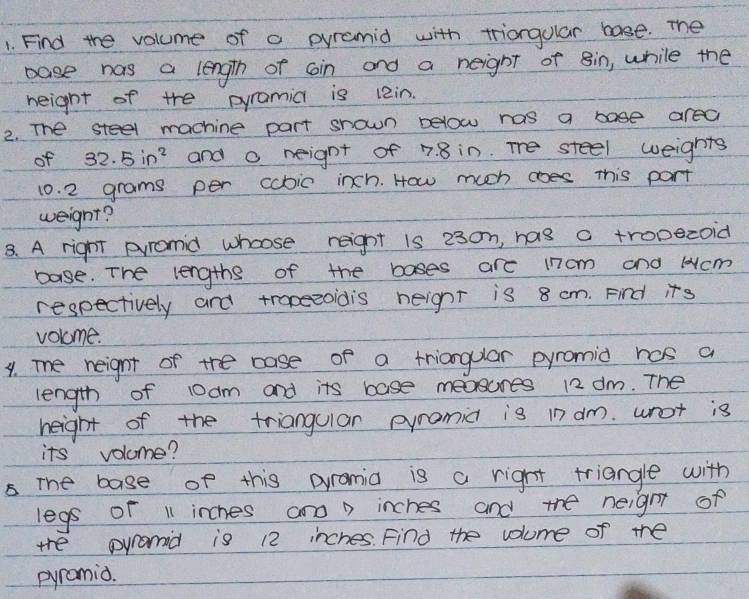 1. Find the volume of a pyramid with triangular base. The
base has a length of 6in and a height of 8in, while the
height of the pyramid is 12in.
2. The steel machine part shown below has a base area
of 32.5 in² and a height of 7.8 in. The steel weights
10.2 grams per ccbic inch. How much does this part
weight?
3. A right pyramid whoose height is 23cm, has a tropezoid
base. The lengths of the bases are 17cm and 14cm
respectively and tropezoidis height is 8 cm. Find its
volume.
4. The height of the base of a triangular pyramid has a
length of 10dm and its base measures 12 dm. The
height of the triangular pyramid is 17 dm. what is
its volume?
5 The base of this pyramid is a right triangle with
legs of 11 inches and 7 inches and the height of
the pyramid is 12 inches. Find the volume of the
pyramid.